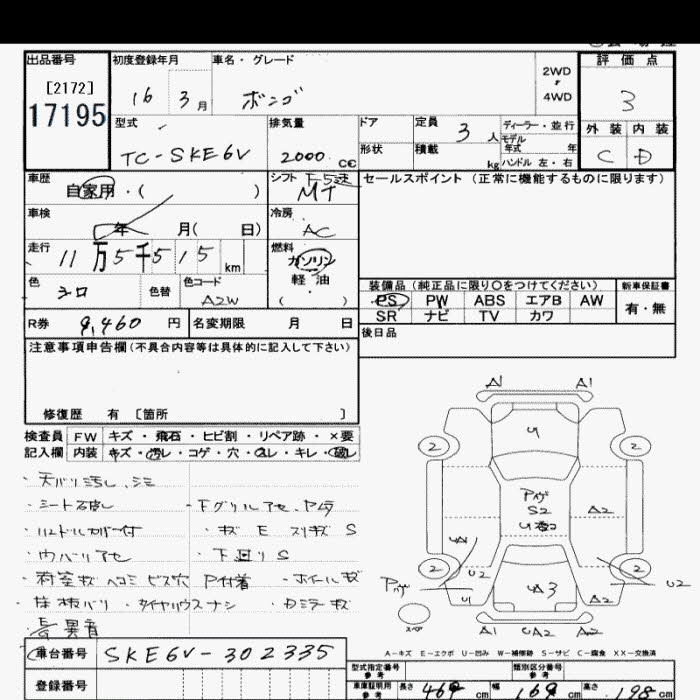 出品番号 初度登録年月 車名・グレード 2WD ・ 4WD 評価点
[2172]
17195 16 3月 ボンゴ 3
型式 排気量 ドア 定員 3人 ディーラー・並行 外装 内装
モデル年式 年
TC-SKE6V 2000 cc 形状 積載 kg ハンドル 左・右 C D
車歴 自家用・( ) シフト F5速 MT セールスポイント (正常に機能するものに限ります)
車検 年 月( 日) 冷房 AC
走行 11万5千515km 燃料 ガソリン
軽・油
( )
色 シロ 色替 色コード A2W
装備品(純正品に限り○をつけてください) 新車保証書
PS PW ABS エアB AW 有・無
SR ナビ TV カワ
R券 9,460円 名変期限 月 日
後日品
注意事項申告欄(不具合内容等は具体的に記入して下さい)
修復歴 有 〔箇所 〕
検査員 FW キズ・飛石・ヒビ割・リペア跡・×要
記入欄 内装 キズ・汚レ・コゲ・穴・スレ・キレ・破レ
・天バリ汚し、シミ
・シート破し ・Fグリルアセ、
・ ・キズ E スリキズ S
・ウハバリアセ ・下廻りS
・荷室キズ ヘコミ ビス穴 P付着 ・ホイールキズ
・ ・タイヤハウスナシ ・Dミラーキズ
・異音
車台番号 SKE6V-302335
登録番号
A1 A1
U
2 2
Pハゲ
S2
A2
UA1
2 2
Pハゲ U2 UA3 U2
U1 A2
A1 UA2 A2
A-キズ E-エクボ U-凹み W-補修跡 S-サビ C-腐食 XX-交換済
型式指定番号 参考 類別区分番号 参考
車庫証明用 参考 長さ 469cm 幅 169cm 高さ 198cm